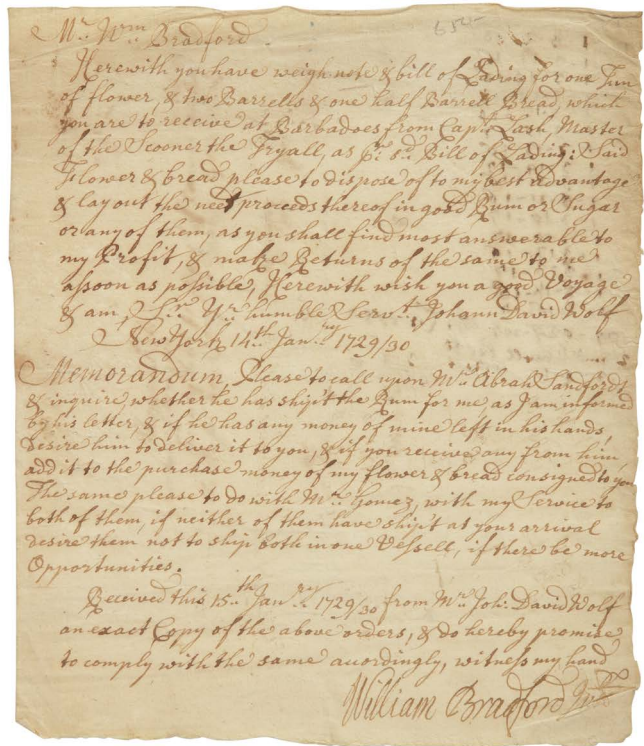 650-
Mr. Wm. Bradford
Herewith you have weigh note & bill of Lading for one Tun
of flower, & two Barrells & one half Barrell Bread, which
you are to receive at Barbadoes from Capt. Lash, Master
of the Scooner the Tryall, as Pr. sd. Bill of Lading: Said
Flower & bread please to dispose of to my best advantage
& lay out the neet proceeds thereof in good Rum or Sugar
or any of them, as you shall find most answerable to
my Profit, & make Returns of the same to me
assoon as possible, Herewith wish you a good Voyage
& am, Sir. Yr. humble Servt. Johann David Wolf
New York, 14th. Janry. 1729/30
Memorandum, Please to call upon Mr. Abrah. Sandfordt
& inquire whether he has ship't the Rum for me, as I am informed
by his letter, & if he has any money of mine left in his hands,
desire him to deliver it to you, & if you receive any from him
add it to the purchase money of my flower & bread consigned to you
The same please to do with Mr. Gomez, with my Service to
both of them, if neither of them have ship't at your arrival
desire them not to ship both in one Vessell, if there be more
Opportunities.
Received this 15th. Janry. 1729/30 from Mr. Joh. David Wolf
an exact Copy of the above orders, & do hereby promise
to comply with the same acordingly, witness my hand
William Bradford